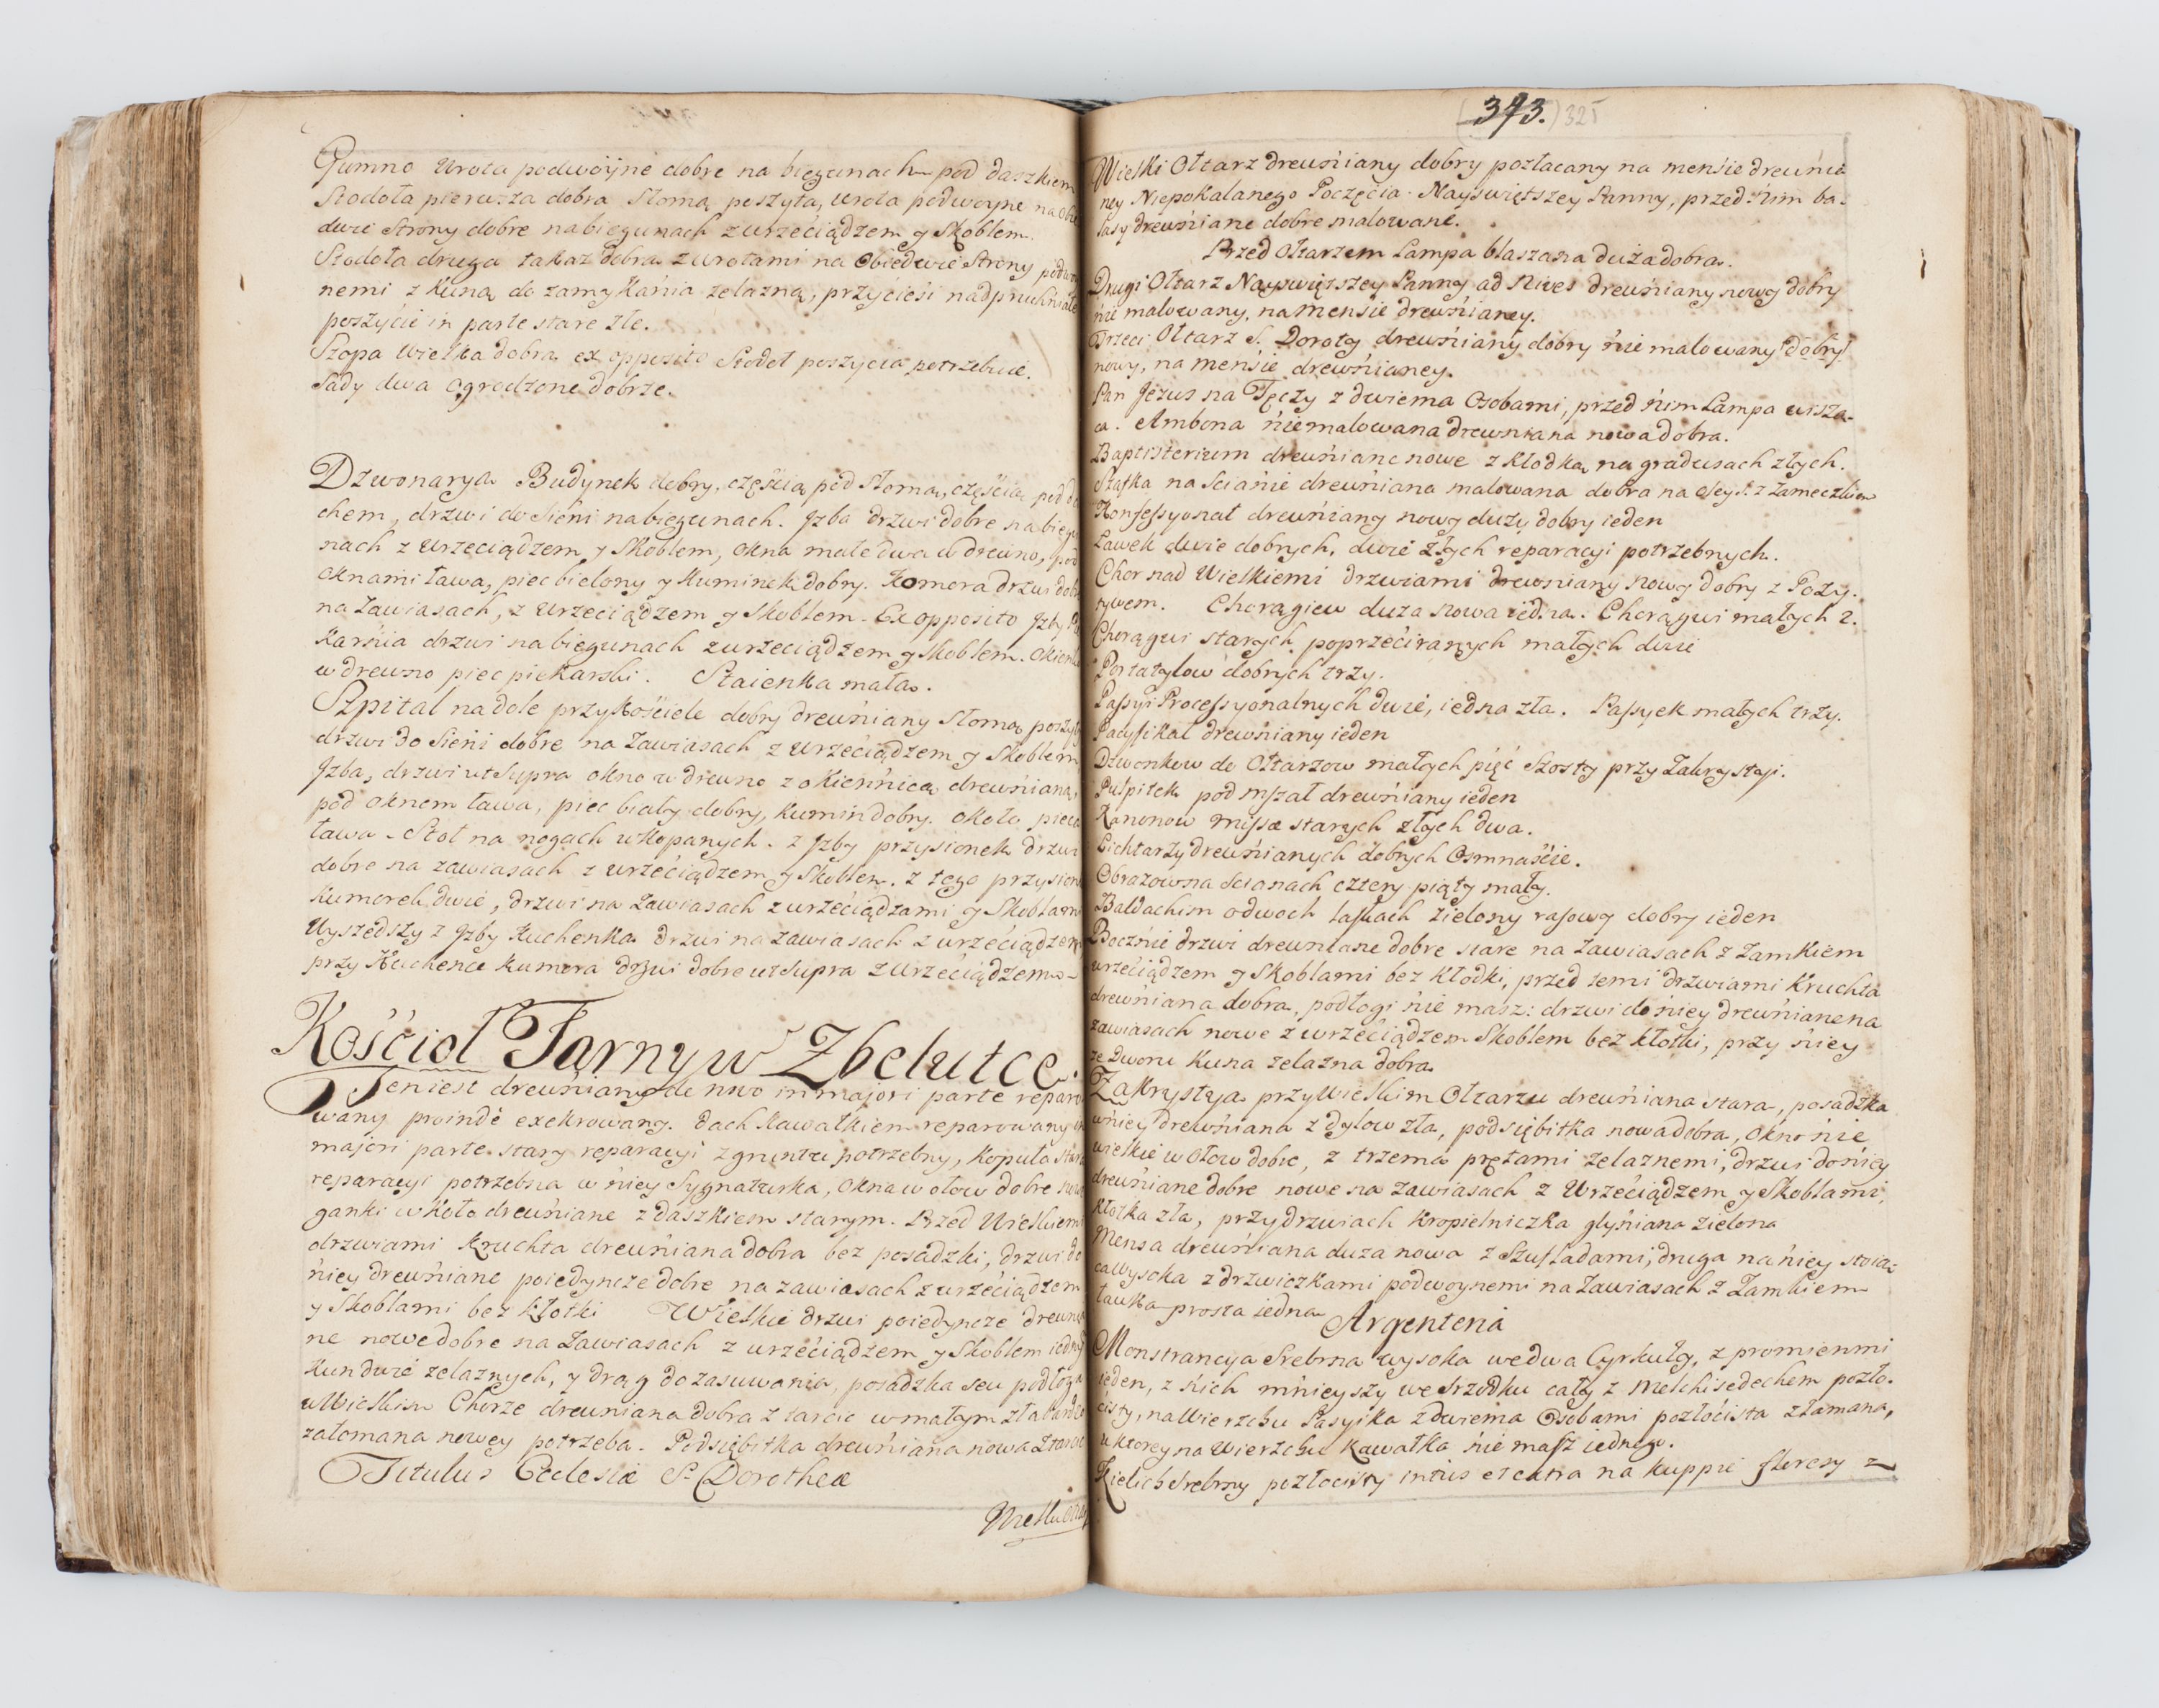 Gumno Wrota podwóyne dobre na biegunach pod daszkiem
Stodoła pierwsza dobra Słomą poszyta, wrota podwoyne na obie
dwie Strony dobre na biegunach z wrzeciądzem y Skoblem.
Stodoła druga takaż dobra z wrotami na Obiedwie Strony podwoy
nemi z Kuną do zamykánia żelazną, przycieśi nadpruchniałe
poszycie in parte stare złe.
Szopa Wielka dobra ex opposito Stodoł poszycia potrzebuie.
Sady dwa Ogrodzone dobrze.
Dzwonarya Budynek dobry, częścią pod Słomą, częścią pod da
chem, drzwi do Sieni na biegunach. Jzba drzwi dobre na biegu
nach z wrzeciądzem y Skoblem, Okna małe dwa w drewno, pod
Oknami ława, piec bielony y Kuminek dobry. Komora drzwi dobre
na Zawiasach, z wrzeciądzem y Skoblem. Ex opposito Jzby Pie
Karńia drzwi na biegunach z wrzeciądzem y Skoblem. Okienko
w drewno piec piekarski. Staienka mała.
Szpital na dole przy Kościele dobry drewńiany Słomą poszyty
drzwi do Sieńi dobre na Zawiasach z wrzeciądzem y Skoblem,
Jzba, drzwi ut Supra okno w drewno z okiennicą drewńianą,
pod oknem ława, piec biały dobry, kumin dobry. około pieca
ława. Stół na nogach wkopanych. z Jzby przysionek drzwi
dobre na zawiasach z wrzeciądzem y Skoblem. z tego przysionka
Kumorek dwie, drzwi na Zawiasach z wrzeciądzami y Skoblami
Wyszedszy z Jzby Kuchenka drzwi na zawiasach z wrzeciądzem
przy Kuchence kumora drzwi dobre ut Supra z wrzeciądzem
Kośćioł Farny w Zbelutce.
Ten iest drewńiany de novo in majori parte reparo
wány proindè exekrowany. Dach kawałkiem reparowany in
majori parte stary reparacyi z gruntu potrzebny, Kopuła stara
reparacyi potrzebna w ńiey Sygnaturka, Okna w ołow dobre
ganki w koło drewńiane z daszkiem starym. Przed Wielkiemi
drzwiami kruchta drewńiana dobra bez posadzki, drzwi do
ńiey drewńiane poiedyncze dobre na zawiasach z wrzeciądzem
y Skoblami bez kłotki Wielkie drzwi poiedyncze drewnia
ne nowe dobre na Zawiasach z wrzeciądzem y Skoblem
kun dwie żelaznych, y drąg do zasuwania, posadzka seu podłoga
w Wielkim Chorze drewniana dobra z tarcic w małym zła
załomana nowey potrzeba. Podsiębitka drewńiana nowa z tarcic
Titulus Ecclesiæ S. Dorotheæ
Wielki Ołtarz
393.
325
Wielki Ołtarz drewńiany dobry pozłacany na mensie drewnia
ney Niepokalanego Poczęcia Nayświętszey Panny, przed ńim ba-
lasy drewńiane dobre malowane.
Przed Ołtarzem Lampa blaszana duża dobra.
Drugi Ołtarz Nayswiętszey Panny ad Nives drewńiany nowy dobry
nie malowany, na mensie drewńianey.
Trzeci Ołtarz S. Doroty drewńiany dobry ńie malowany dobry
nowy, na meńsie drewńianey.
Pan Jezus na Tęczy z dwiema Osobami, przed ńim Lampa wisza-
ca. Ambona ńie malowana drewniana nowa dobra.
Baptisterium drewńiane nowe z kłodką na gradusach złych.
Szafka na Scianie drewńiana malowana dobra na Oley S. z zameczkiem
Konfessyonał drewńiany nowy duży dobry ieden
Ławek dwie dobrych, dwie złych reparacyi potrzebnych.
Chor nad Wielkiemi drzwiami drewniany nowy dobry z Pozy-
tywem. Chorągiew duza nowa iedna. Chorągwi małych 2.
Chorągwi starych poprzecieranych małych dwie
Portatylow dobrych trzy.
Passyi Processyonalnych dwie, iedna zła. Passyek małych trzy.
Pacyfikał drewńiany ieden
Dzwonkow do Ołtarzow małych pięć Szosty przy Zakrystyi.
Pulpitek pod mszał drewńiany ieden
Kanonow missæ starych złych dwa.
Lichtarzy drewńianych dobrych Osmnaście.
Obrazow na Scianach cztery piąty mały.
Baldachim o dwoch laskach zielony rasowy dobry ieden
Bocznie drzwi drewniane dobre stare na Zawiasach z Zamkiem
wrzeciądzem y Skoblami bez Kłodki, przed temi drzwiami Kruchta
drewńiana dobra, podłogi ńie masz: drzwi do ńiey drewńiane na
zawiasach nowe z wrzeciądzem Skoblem bez kłotki, przy ńiey
ze dworu Kuna zelazna dobra
Zakrystya przy Wielkim Ołtarzu drewńiana stara, posadzka
w ńiey drewńiana z dylow zła, podsiębitka nowa dobra, Okno nie
wielkie w ołow dobre, z trzema prętami zelaznemi, drzwi do ńiey
drewńiane dobre nowe na zawiasach z Wrzeciądzem y Skoblami
kłotka zła, przy drzwiach Kropielniczka glyńiana zielona
Mensa drewńiana duza nowa z Szufladami, druga na ńiey stoią-
ca wysoka z drzwiczkami podwoynemi na Zawiasach z Zamkiem
ławka prosta iedna
Argenteria
Monstrancya Srebrna wysoka we dwa Cyrkuły, z promieńmi
ieden, z ńich mńieyszy we srzodku cały z Melchisedechem pozło-
cisty, na Wierzchu Pasyika z dwiema Osobami pozłocista złamana,
u ktorey na Wierzchu kawałka ńie masz iednego.
Kielich Srebrny pozłocisty intus et extra na kuppie floresy z